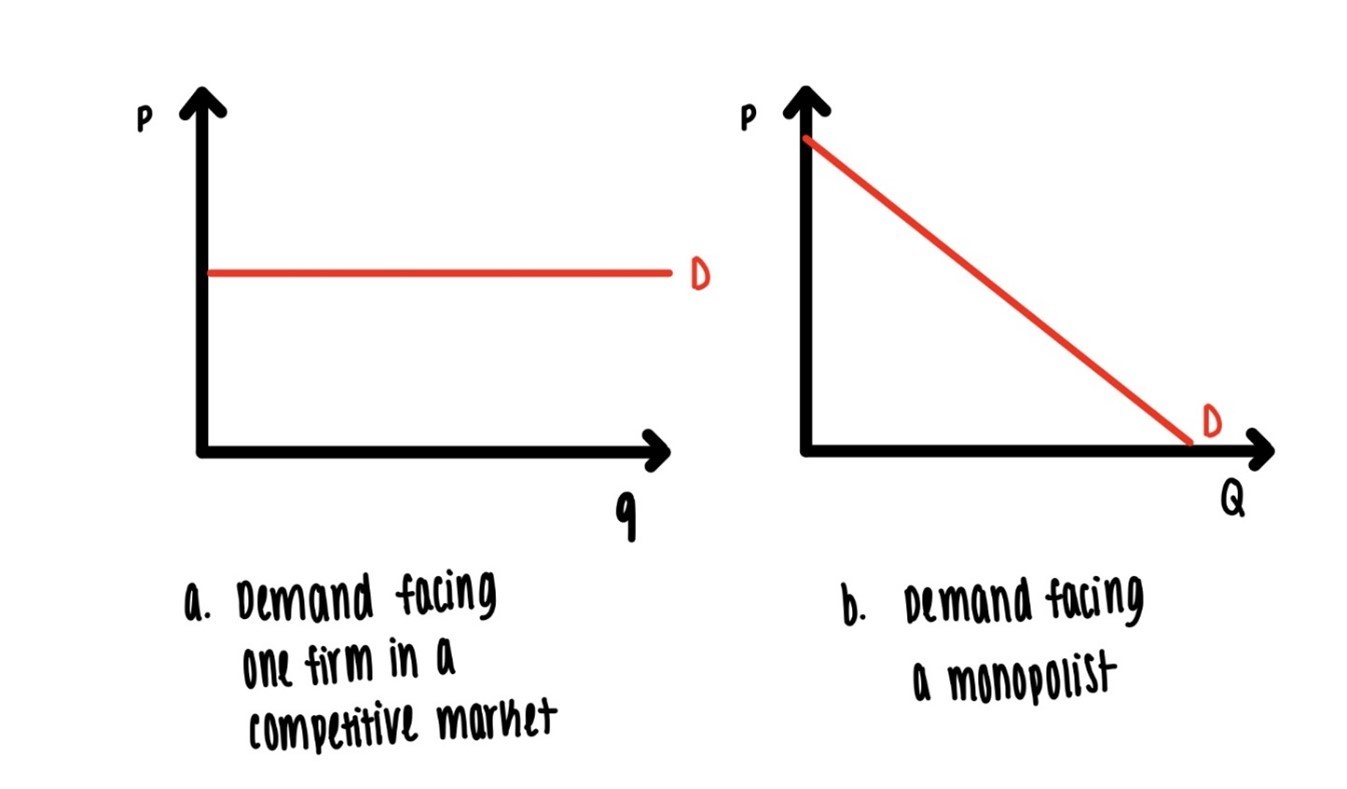 P
D
q
a. Demand facing
one firm in a
competitive market
P
D
Q
b. Demand facing
a monopolist